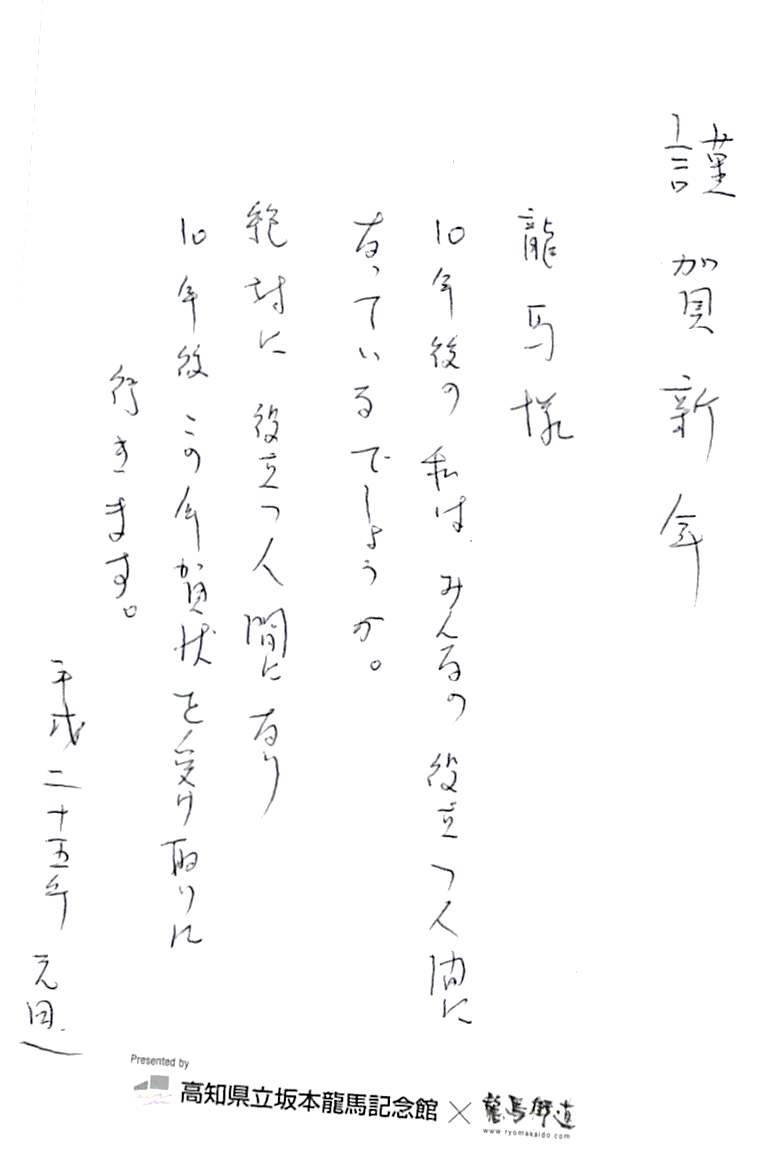 謹賀新年
龍馬様
10年後の私は、みんなの役立つ人間に
なっているでしょうか。
絶対に役立つ人間になり
10年後この年賀状を受け取りに
行きます。
平成二十五年 元旦
Presented by
高知県立坂本龍馬記念館 × 龍馬街道
www.ryomakaido.com